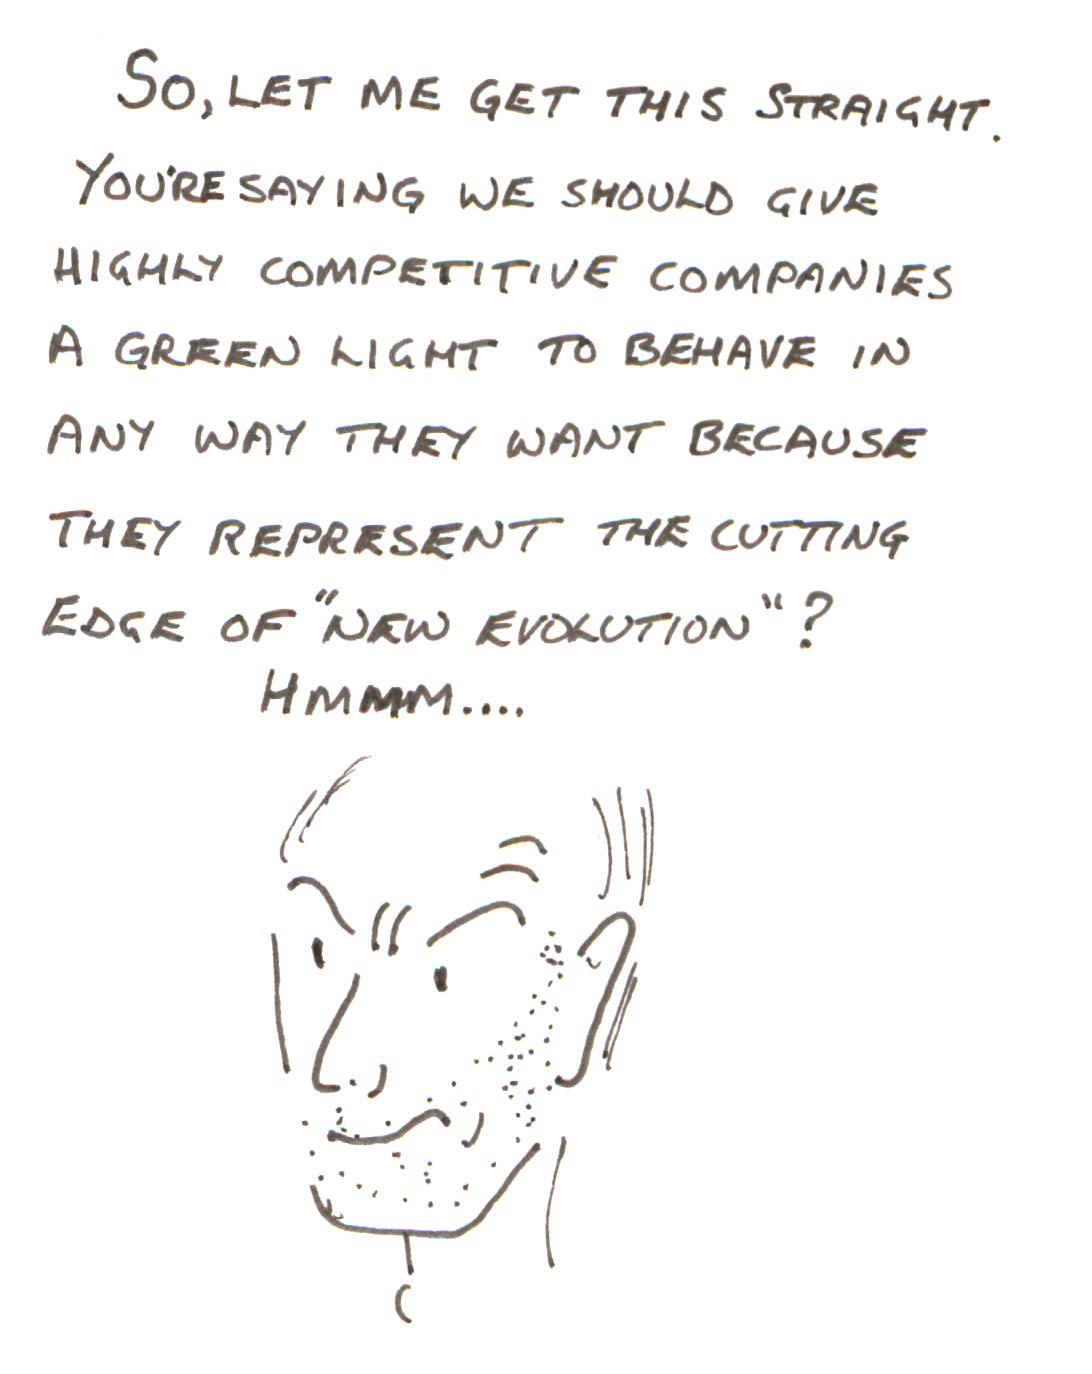 SO, LET ME GET THIS STRAIGHT.
YOU'RE SAYING WE SHOULD GIVE
HIGHLY COMPETITIVE COMPANIES
A GREEN LIGHT TO BEHAVE IN
ANY WAY THEY WANT BECAUSE
THEY REPRESENT THE CUTTING
EDGE OF "NEW EVOLUTION"?
HMMMM....